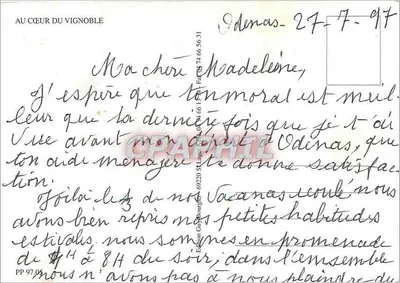 AU CŒUR DU VIGNOBLE
Odenas - 27-7-97
Ma chère Madeleine,
J'espère que ton moral est meil-
leur que la dernière fois que je t'ai
vue avant mon départ Odenas, que
ton aide ménagère te donne satisfac-
tion.
Voilà le de nos nous
avons bien repris nos petites habitudes
estivales nous sommes en promenade
de 7H à 8H du soir, dans l'ensemble
nous n'avons pas à nous plaindre du
PP 97